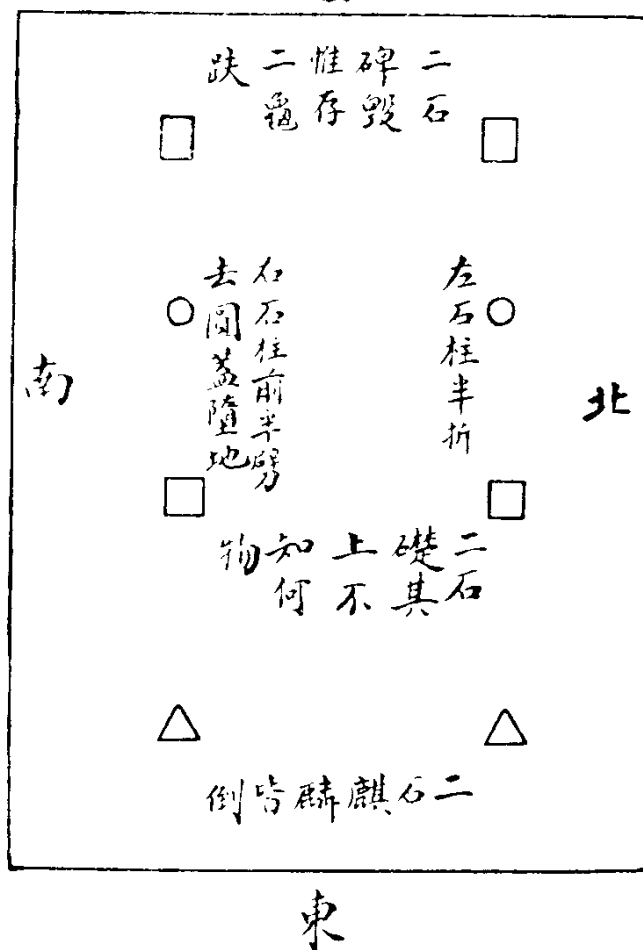 二石
碑毀
惟存
二龜
趺
北
左石柱半折
右石柱前半劈
去圓蓋墮地
南
二石
礎其
上不
知何
物
二石麒麟皆倒
東